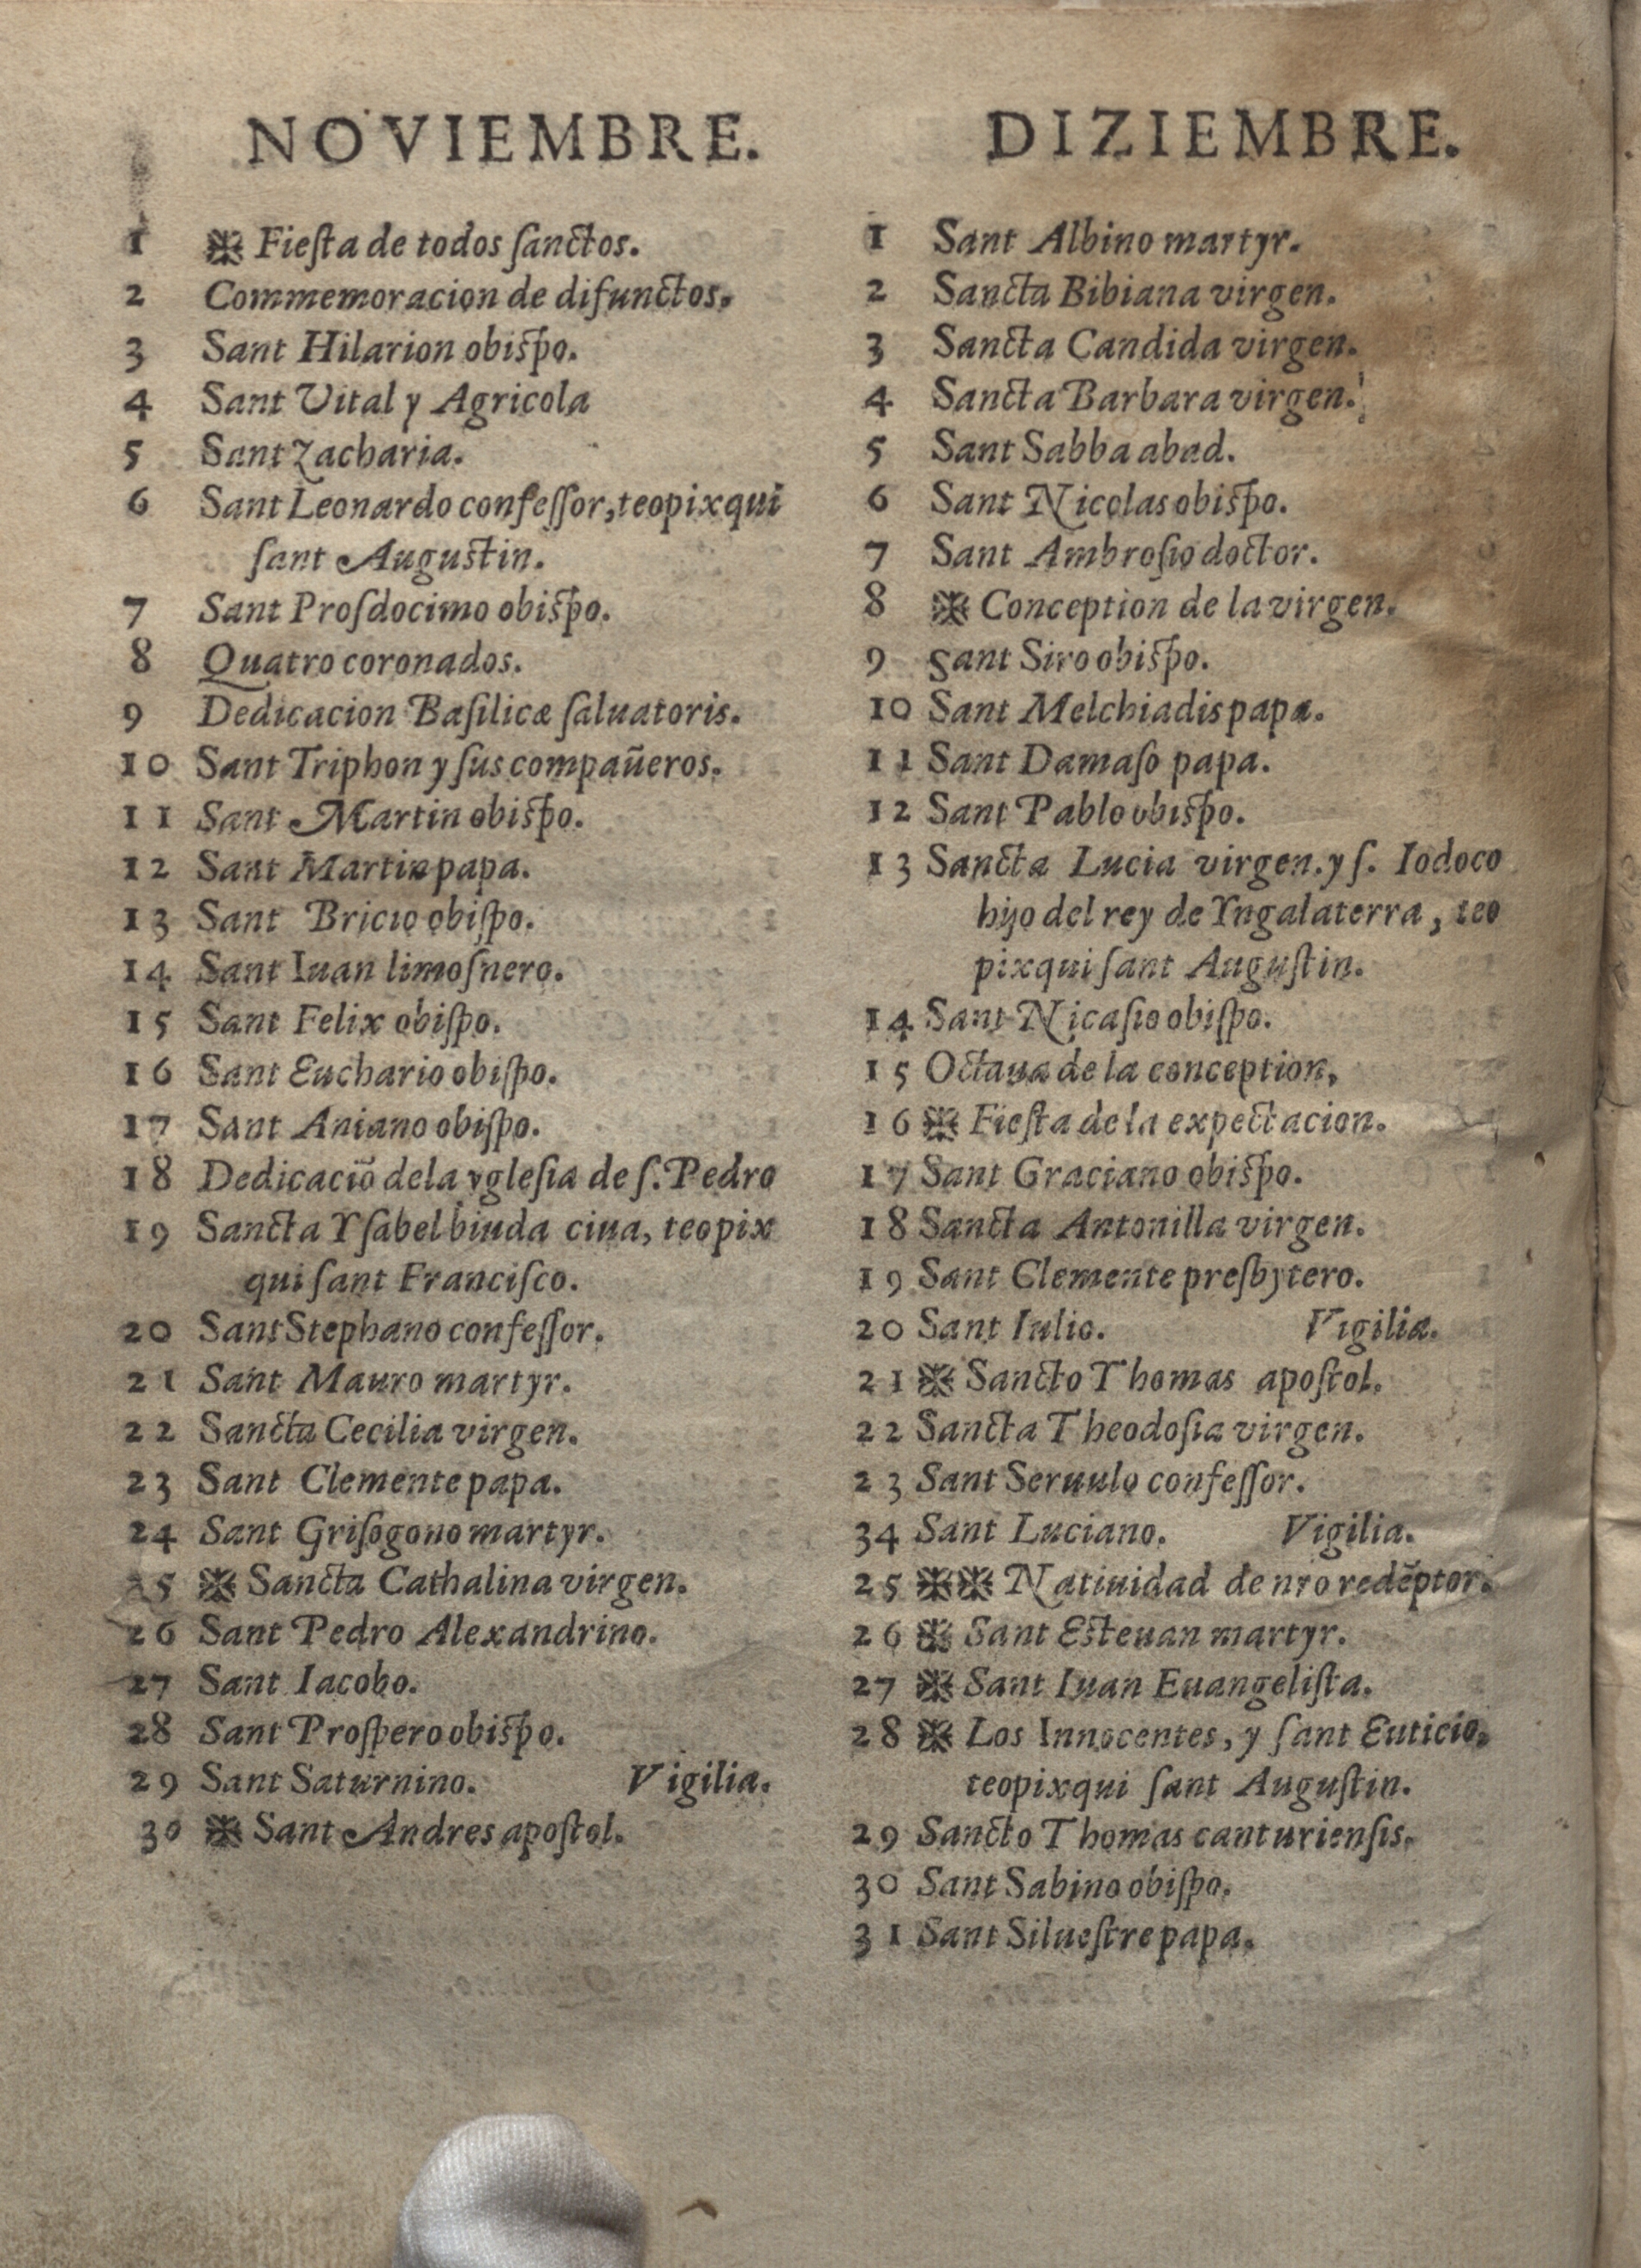 NOVIEMBRE.
1 ※ Fieſta de todos ſanctos.
2 Commemoracion de difunctos.
3 Sant Hilarion obiſpo.
4 Sant Vital y Agricola
5 Sant Zacharia.
6 Sant Leonardo confeſſor, teopixqui
ſant Auguſtin.
7 Sant Proſdocimo obiſpo.
8 Quatro coronados.
9 Dedicacion Baſilicæ ſaluatoris.
10 Sant Triphon y ſus compañeros.
11 Sant Martin obiſpo.
12 Sant Martin papa.
13 Sant Bricio obiſpo.
14 Sant Iuan limoſnero.
15 Sant Felix obiſpo.
16 Sant Euchario obiſpo.
17 Sant Aniano obiſpo.
18 Dedicaciō dela ygleſia de ſ. Pedro
19 Sancta Yſabel biuda ciua, teopix
qui ſant Franciſco.
20 Sant Stephano confeſſor.
21 Sant Mauro martyr.
22 Sancta Cecilia virgen.
23 Sant Clemente papa.
24 Sant Griſogono martyr.
25 ※ Sancta Cathalina virgen.
26 Sant Pedro Alexandrino.
27 Sant Iacobo.
28 Sant Proſpero obiſpo.
29 Sant Saturnino. Vigilia.
30 ※ Sant Andres apoſtol.
DIZIEMBRE.
1 Sant Albino martyr.
2 Sancta Bibiana virgen.
3 Sancta Candida virgen.
4 Sancta Barbara virgen.
5 Sant Sabba abad.
6 Sant Nicolas obiſpo.
7 Sant Ambroſio doctor.
8 ※ Conception de la virgen.
9 Sant Siro obiſpo.
10 Sant Melchiadis papa.
11 Sant Damaſo papa.
12 Sant Pablo obiſpo.
13 Sancta Lucia virgen. y ſ. Iodoco
hijo del rey de Yngalaterra, teo
pixqui ſant Auguſtin.
14 Sant Nicaſio obiſpo.
15 Octaua de la conception,
16 ※ Fieſta de la expectacion.
17 Sant Graciano obiſpo.
18 Sancta Antonilla virgen.
19 Sant Clemente preſbytero.
20 Sant Iulio. Vigilia.
21 ※ Sancto Thomas apoſtol.
22 Sancta Theodoſia virgen.
23 Sant Seruulo confeſſor.
34 Sant Luciano. Vigilia.
25 ※※ Natiuidad de nr̄o redēptor.
26 ※ Sant Eſteuan martyr.
27 ※ Sant Iuan Euangeliſta.
28 ※ Los Innocentes, y ſant Euticio,
teopixqui ſant Auguſtin.
29 Sancto Thomas canturienſis.
30 Sant Sabino obiſpo.
31 Sant Silueſtre papa.